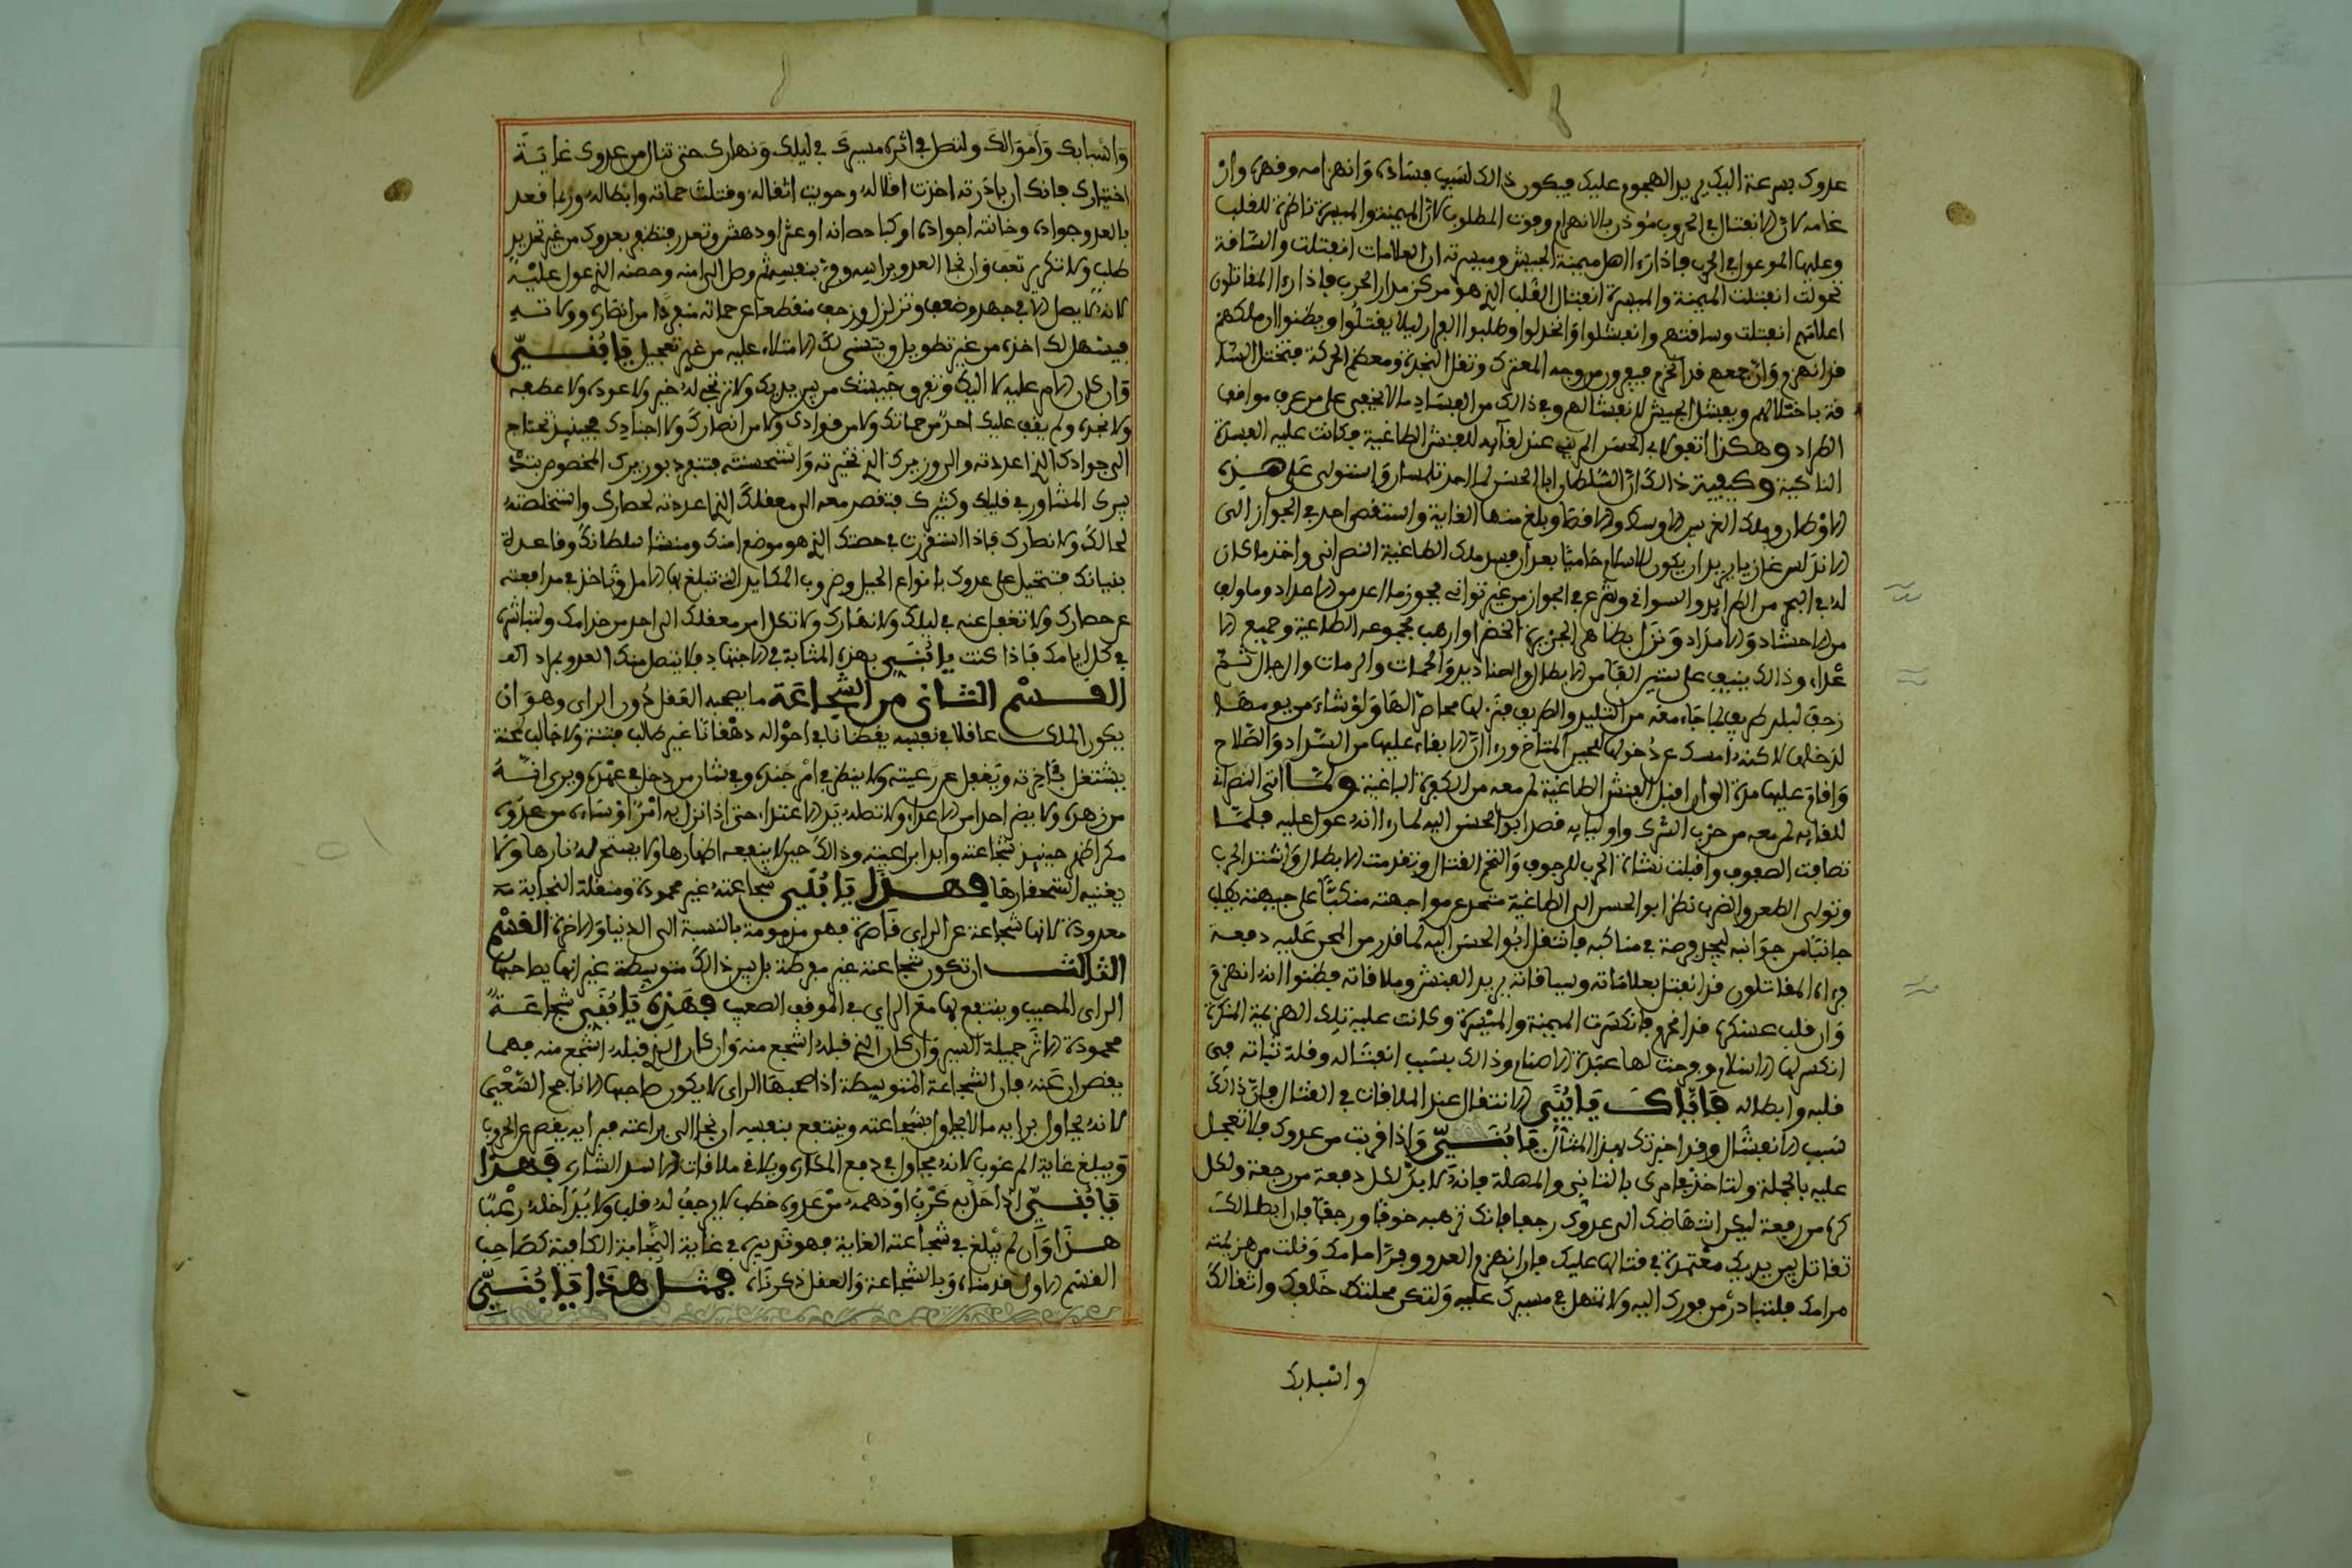 عدوك بسرعة اليك يريد الهجوم عليك فيكون ذالك لسبب فساده وانهزامه وقهره وان
غلبه لان الانفتال في الحروب مؤذن بالانهزام وفوت المطلوب لان الميمنة والميسرة ناظرة للقلب
وعليها المعول في الحرب فاذا راءا اهل ميمنة الجيش وميسرته ان العلامات انفتلت والساقة
تحولت انفتلت الميمنة والميسرة انفتال القلب الذي هو مركز مدار الحرب فاذا رءا المقاتلون
اعلامهم انفتلت وساقتهم وانفشلوا وانخذلوا وطلبوا الفرار ليلا يقتلوا ويظنوا ان ملكهم
قد انهزم وان جمعهم قد انخرم فيفرون من وجه المعترك وتقل النجدة ومعظم الحركة فتختل
باختلالهم ويفشل الجيش لانفشالهم وفي ذالك من الفساد ما لا يخفى على من عرف مواقف
الطراد وهكذا اتفق لابي الحسن المريني عند لقايه للفنش الطاغية فكانت عليه الكسرة
الناكية وكيفية ذالك ان السلطان ابا الحسن لما اخذ تلمسان واستولى على هذه
الاوطار وملك الغربين الاوسط والاقصا وبلغ منها الغاية واستقصى اخذ في الجواز الى
الاندلس غازيا يريد ان يكون للاسلام حاميا بعد ان فسد ملك الطاغية النصراني واخذ ما كان
له في البحر من الطرايد والسواني وشرع في الجواز من غير تواني فجوز ما اعد من الاعداد وما ولي
من الاحشاد والامداد ونزل بظاهر الجزيرة الخضرا وارهب بجموعه الطاغية وجميع الا
عداء وذالك ينيف على ستين الفا من الابطال والصناديد والحمات والرمات والرجال ثم
زحف لبلد طريف بما جاء معه من التليد والطريف فنزلها محاصرا لها ولو شاء من يومها
لدخلها لاكنه امسك عن دخولها للحين المتاخر وراءا ان الابقاء عليها من السداد والصلاح
واقام عليها مدة الى ان اقبل الفنش الطاغية لمن معه من الكفرة الباغية ولما اتى النصراني
للقايه بمن معه من حزب الشرك واوليايه قصد ابو الحسن اليه لما رءا انه عول عليه فلما
تصافت الصفوف واقبلت نشأة الحرب للزحوف والتحم القتال وتقدمت الابطال واشتد الحرب
وتوالى الطعن والضرب نظر ابو الحسن الى الطاغية منحرف عن مواجهته منكبا على جبهته يطلب
جانبا من جوانبه ليجد فرصة في مناكبه فانتقل ابو الحسن اليه لما قدر من المحن عليه دفعة
فرءاه المقاتلون قد انفتل بعلاماته وسياقاته يريد الفنش وملاقاته فظنوا انه انهزم
وان قلب عسكره قد انخرم فانكسرت الميمنة والميسرة وكانت عليه تلك الهزيمة المنكرة
انكسر لها الاسلام وفرحت لها عبدة الاصنام وذالك بسبب انفشاله وقلة ثباته في
قلبه وابطاله فاياك يا بني الانتقال عند الملاقات في القتال فان ذالك
سبب الانفشال وقد اخبرتك بهذا المثال يا بني واذا قربت من عدوك فلا تعجل
عليه بالجملة ولتاخذ في امرك بالتاني والمهلة فانه لا بد لكل دفعة من رجعة ولكل
كره من رفعة ليكن انتهاضك الى عدوك رجعا فانك ترهبه خوفا ورجفا فان ابطالك
تقاتل بين يديك معتمدة في قتالها عليك فان انهزم العدو وفر امامك ونلت من هزيمته
مرامك فلتبادر من فورك اليه ولا تتمهل في مسيرك عليه ولتكن محلتك خلفك واثقالك
واسبابك
واسبابك واموالك ولتصل في اثره مسيرك في ليلك ونهارك حتى تنال من عدوك غاية
اختيارك فانك ان بادرته اخذت افلاله وحويت اثقاله وقتلت حماته وابطاله وربما قعد
بالعدو جواده وخانته اجواده او كبا حصانه او عثر او دهش وتعذر فتظفر بعدوك من غير تحديد
طلب ولا تكرير تعب وان نجا العدو براسه وفر بنفسه ثم وصل الى امنه وحصنه الذي عول عليه
لانه لا يصل الا في جهد وضعف وتزلزل وزحف منقطعا عن حماته منفردا من انصاره وولاته
فيسهل لك اخذه من غير تطويل ويتسنى لك الاستلاء عليه من غير تعجيل يا بني
وان كان الامر عليك لا اليك وتفرق جيشك من بين يديك ولا ترتجي له خير ولا عوده ولا عطفه
ولا نجده ولم يقف عليك احد من حماتك ولا من قوادك ولا من انصارك ولا اجنادك فحينيذ تحتاج
الى جوادك الذي اعددته والى وزيرك الذي تخيرته واستحسنته فتنفرد بوزيرك المخصوص بتدبيرك
المشاور في قليلك وكثيرك فتقصد معه الى معقلك الذي اعددته لحصارك واستخلصته
لحالك ولانصارك فاذا استقررت في حصنك الذي هو موضع امنك ومنشا سلطانك وقاعدة
بنيانك فتتحيل على عدوك بانواع الحيل وضروب المكايد التي تبلغ بها الامل وتاخذ في مدافعته
عن حصارك ولا تغفل عنه في ليلك ولا نهارك ولا تكل امر معقلك الى احد من خدامك ولتباشره
في كل ايامك فاذا كنت يا بني بهذه المثابة في الاجتهاد فلا يتصل منك العدو بمراد
القسم الثاني من الشجاعة ما يصحبه العقل دون الراي وهو ان
يكون الملك عاقلا في نفسه يقظانا في احواله دهقانا غير طالب فتنة ولا جالب محنة
يشتغل بئاخرته ويغفل عن رعيته ولا ينظر في امر جنده وفي شان من دخل في عهده ويرى انه
من زهده ولا يضر احدا من الاعداء ولا تطله يد الاعتداء حتى اذا نزل به امر او ساءه من عدوه
مكر اظهر حينيذ شجاعته وابدا براعته وذالك حين لا ينفعه اظهارها ولا يفتح له نارها ولا
يغنيه استحقارها فهذا يا بني شجاعته غير محمودة ومنقلة النجابة منه
معدودة لانها شجاعة عن الراي قاصرة فهو مذمومة بالنسبة الى الدنيا والاخرة القسم
الثالث ان تكون شجاعته غير مفرطة بل بين ذالك متوسطة غير انها يصاحبها
الراي المصيب وينتفع بها مع الراي في الموقف الصعيب فهذه يا بني شجاعة
محمودة الاثر جميلة السير وان كان الذي قبله اشجع منه وان كان الذي قبله اشجع منه فهما
يقصران عنه فان الشجاعة المتوسطة اذا صحبها الراي لا يكون صاحبها الا ناجح السعي
لانه يحاول برايه ما لا يحاول بشجاعته وينتفع بنفسه ان نجا الى براعته فبرايه يقصم عرى الحروب
ويبلغ غاية المرغوب لانه يحاول في دفع المكاره ويلاقي ملاقات الاسد الشاره فهذا
يا بني اذا حل به حرب او دهمه من عدوه خطب لا يرجف له قلب ولا يداخله رعبا
هذا وان لم يبلغ في شجاعته الغاية فهو بتدبيره في غاية النجابة الكافية كصاحب
القسم الاول قدمناه وبالشجاعة والعقل ذكرناه فمثل هذا يا بني